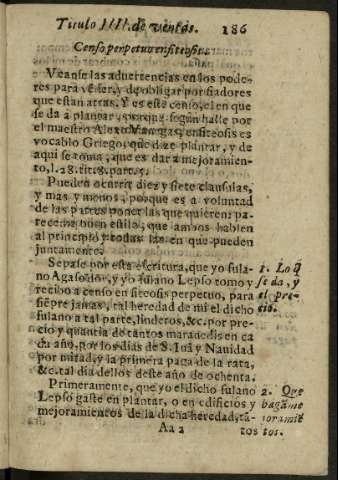 Titulo IIII. de ventas. 186
Censo perpetuo enfiteosis.
Veanse las aduertencias en los pode-
res para vẽser, y de obligar por fiadores
que estan atras. Y es este censo, el en que
se da à plantar, porque según hallè por
el maestro Alexo Vanegas, enfiteosis es
vocablo Griego, que dize plantar, y de
aqui se toma, que es dar a mejoramien-
to, l. 28. tit. 8. part. 5.
Pueden ocurrir diez y siete clausulas,
y mas y menos, porque es a voluntad
de las partes poner las que quieren: pa-
receme buen estilo, que ambos hablen
al principio y todas las en que pueden
juntamente.
Sepase por esta escritura, que yo fula-
no Agasodor, y yo fulano Lepso tomo y
recibo a censo en fiteosis perpetuo, para
siẽpre jamas, tal heredad de mi el dicho
fulano a tal parte, linderos, &c. por pre-
cio y quantia de tantos marauedis en ca
du año, por los dias de S. Iuã y Nauidad
por mitad, y la primera paga de la rata,
&c. tal dia dellos deste año de ochenta.
1. Lo q̃
se da, y
el pre-
cio.
Primeramente, que yo el dicho fulano
Lepso gaste en plantar, o en edificios y
mejoramientos de la dicha heredad, tã-
2. Que
hagã me
ioramiẽ
tos.
Aa 2 tos